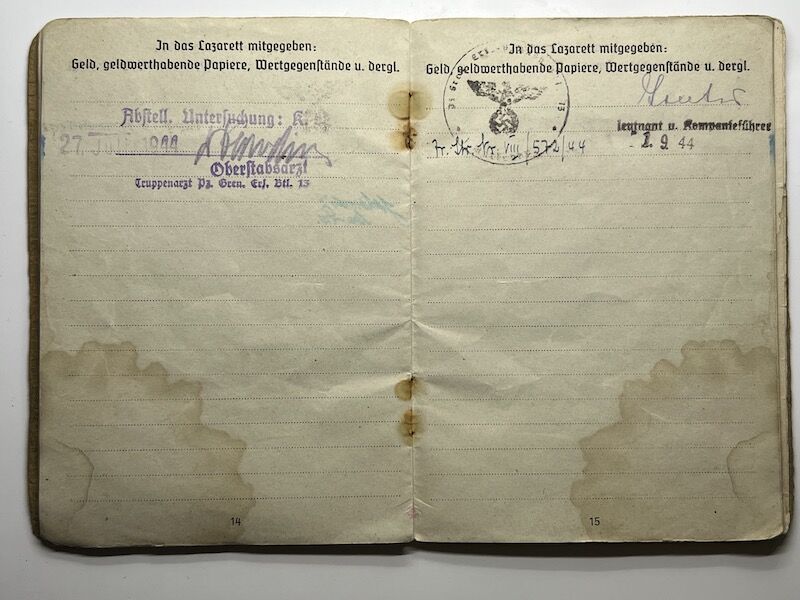 In das Lazarett mitgegeben:
Geld, geldwerthabende Papiere, Wertgegenstände u. dergl.
Abstell. Untersuchung:
27. 1944
Oberstabsarzt
Truppenarzt Pz. Gren. Ers. Btl. 13
14
In das Lazarett mitgegeben:
Geld, geldwerthabende Papiere, Wertgegenstände u. dergl.
Leutnant u. Kompanieführer
Tr. Str. Nr. VIII/572/44
2. 9. 44
15